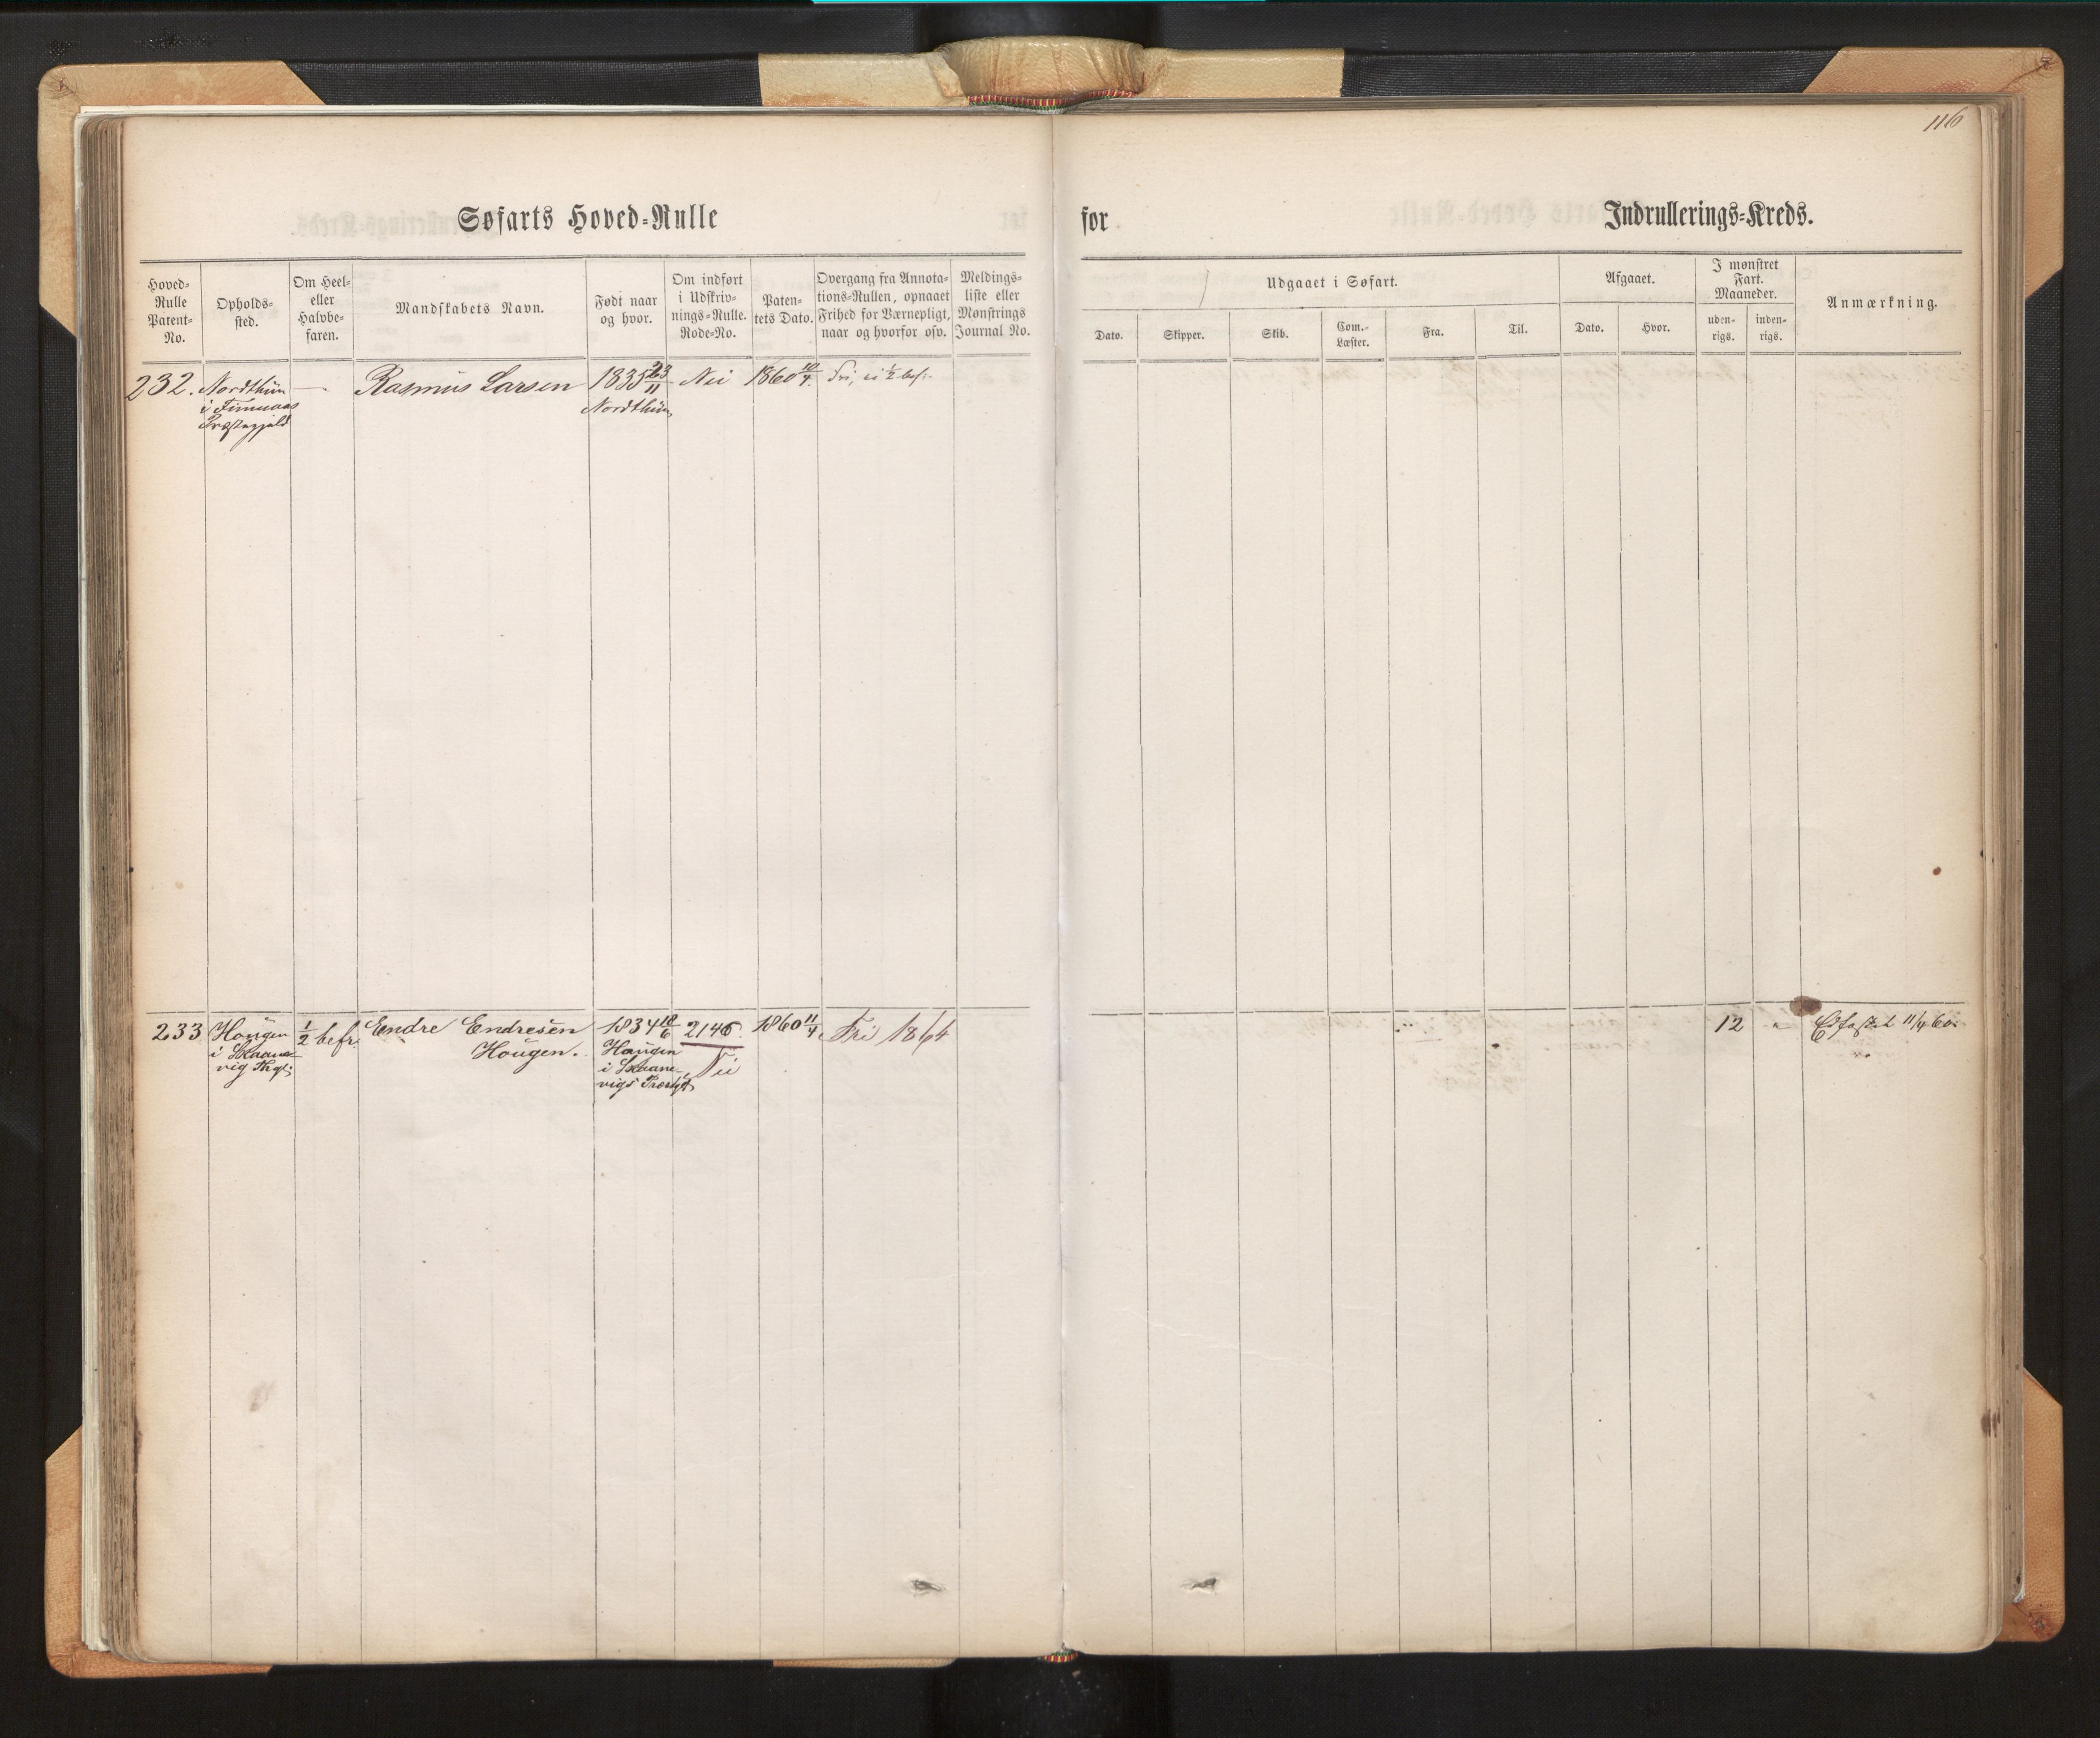 116
Søfarts Hoved=Rulle
for
Indrullerings=Kreds.
Hoved-
Rulle
Patent-
No.
Opholds-
sted.
Om Heel-
eller
Halvbe-
faren.
Mandskabets Navn.
Født naar
og hvor.
Om indført
i Udskriv-
nings=Rulle.
Rode=No.
Paten-
tets Dato.
Overgang fra Annota-
tions=Rullen, opnaaet
Frihed for Værnepligt,
naar og hvorfor osv.
Meldings-
liste eller
Mønstrings
Journal No.
Udgaaet i Søfart.
Dato.
Skipper.
Skib.
Com.-
Læster.
Fra.
Til.
Afgaaet.
Dato.
Hvor.
I mønstret
Fart.
Maaneder.
uden-
rigs.
inden-
rigs.
Anmærkning.
232.
Nordthün
i Finnaas
Præstegjeld
—
Rasmus Larsen
1835 23/11
Nordthün
Nei
1860 10/4.
Fri, ei ½ bef:
233
Hougen
i Skaane-
vig
½ befr.
Endre Endresen
Hougen.
1834 18/6
Hougen
i Skaane-
vigs
2146.
Nei
1860 11/4
Fri 1864
12
"
11/4 60.